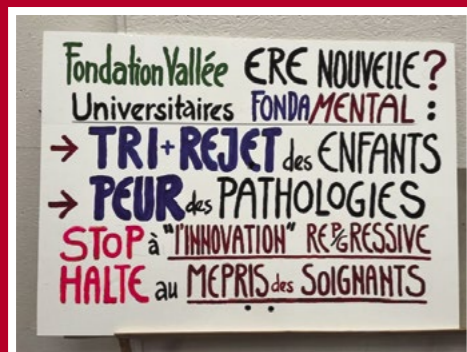 Fondation Vallée ERE NOUVELLE?
Universitaires FONDAMENTAL :
→ TRI+REJET des ENFANTS
→ PEUR des PATHOLOGIES
STOP à "l'INNOVATION" REP/GRESSIVE
HALTE au MEPRIS des SOIGNANTS